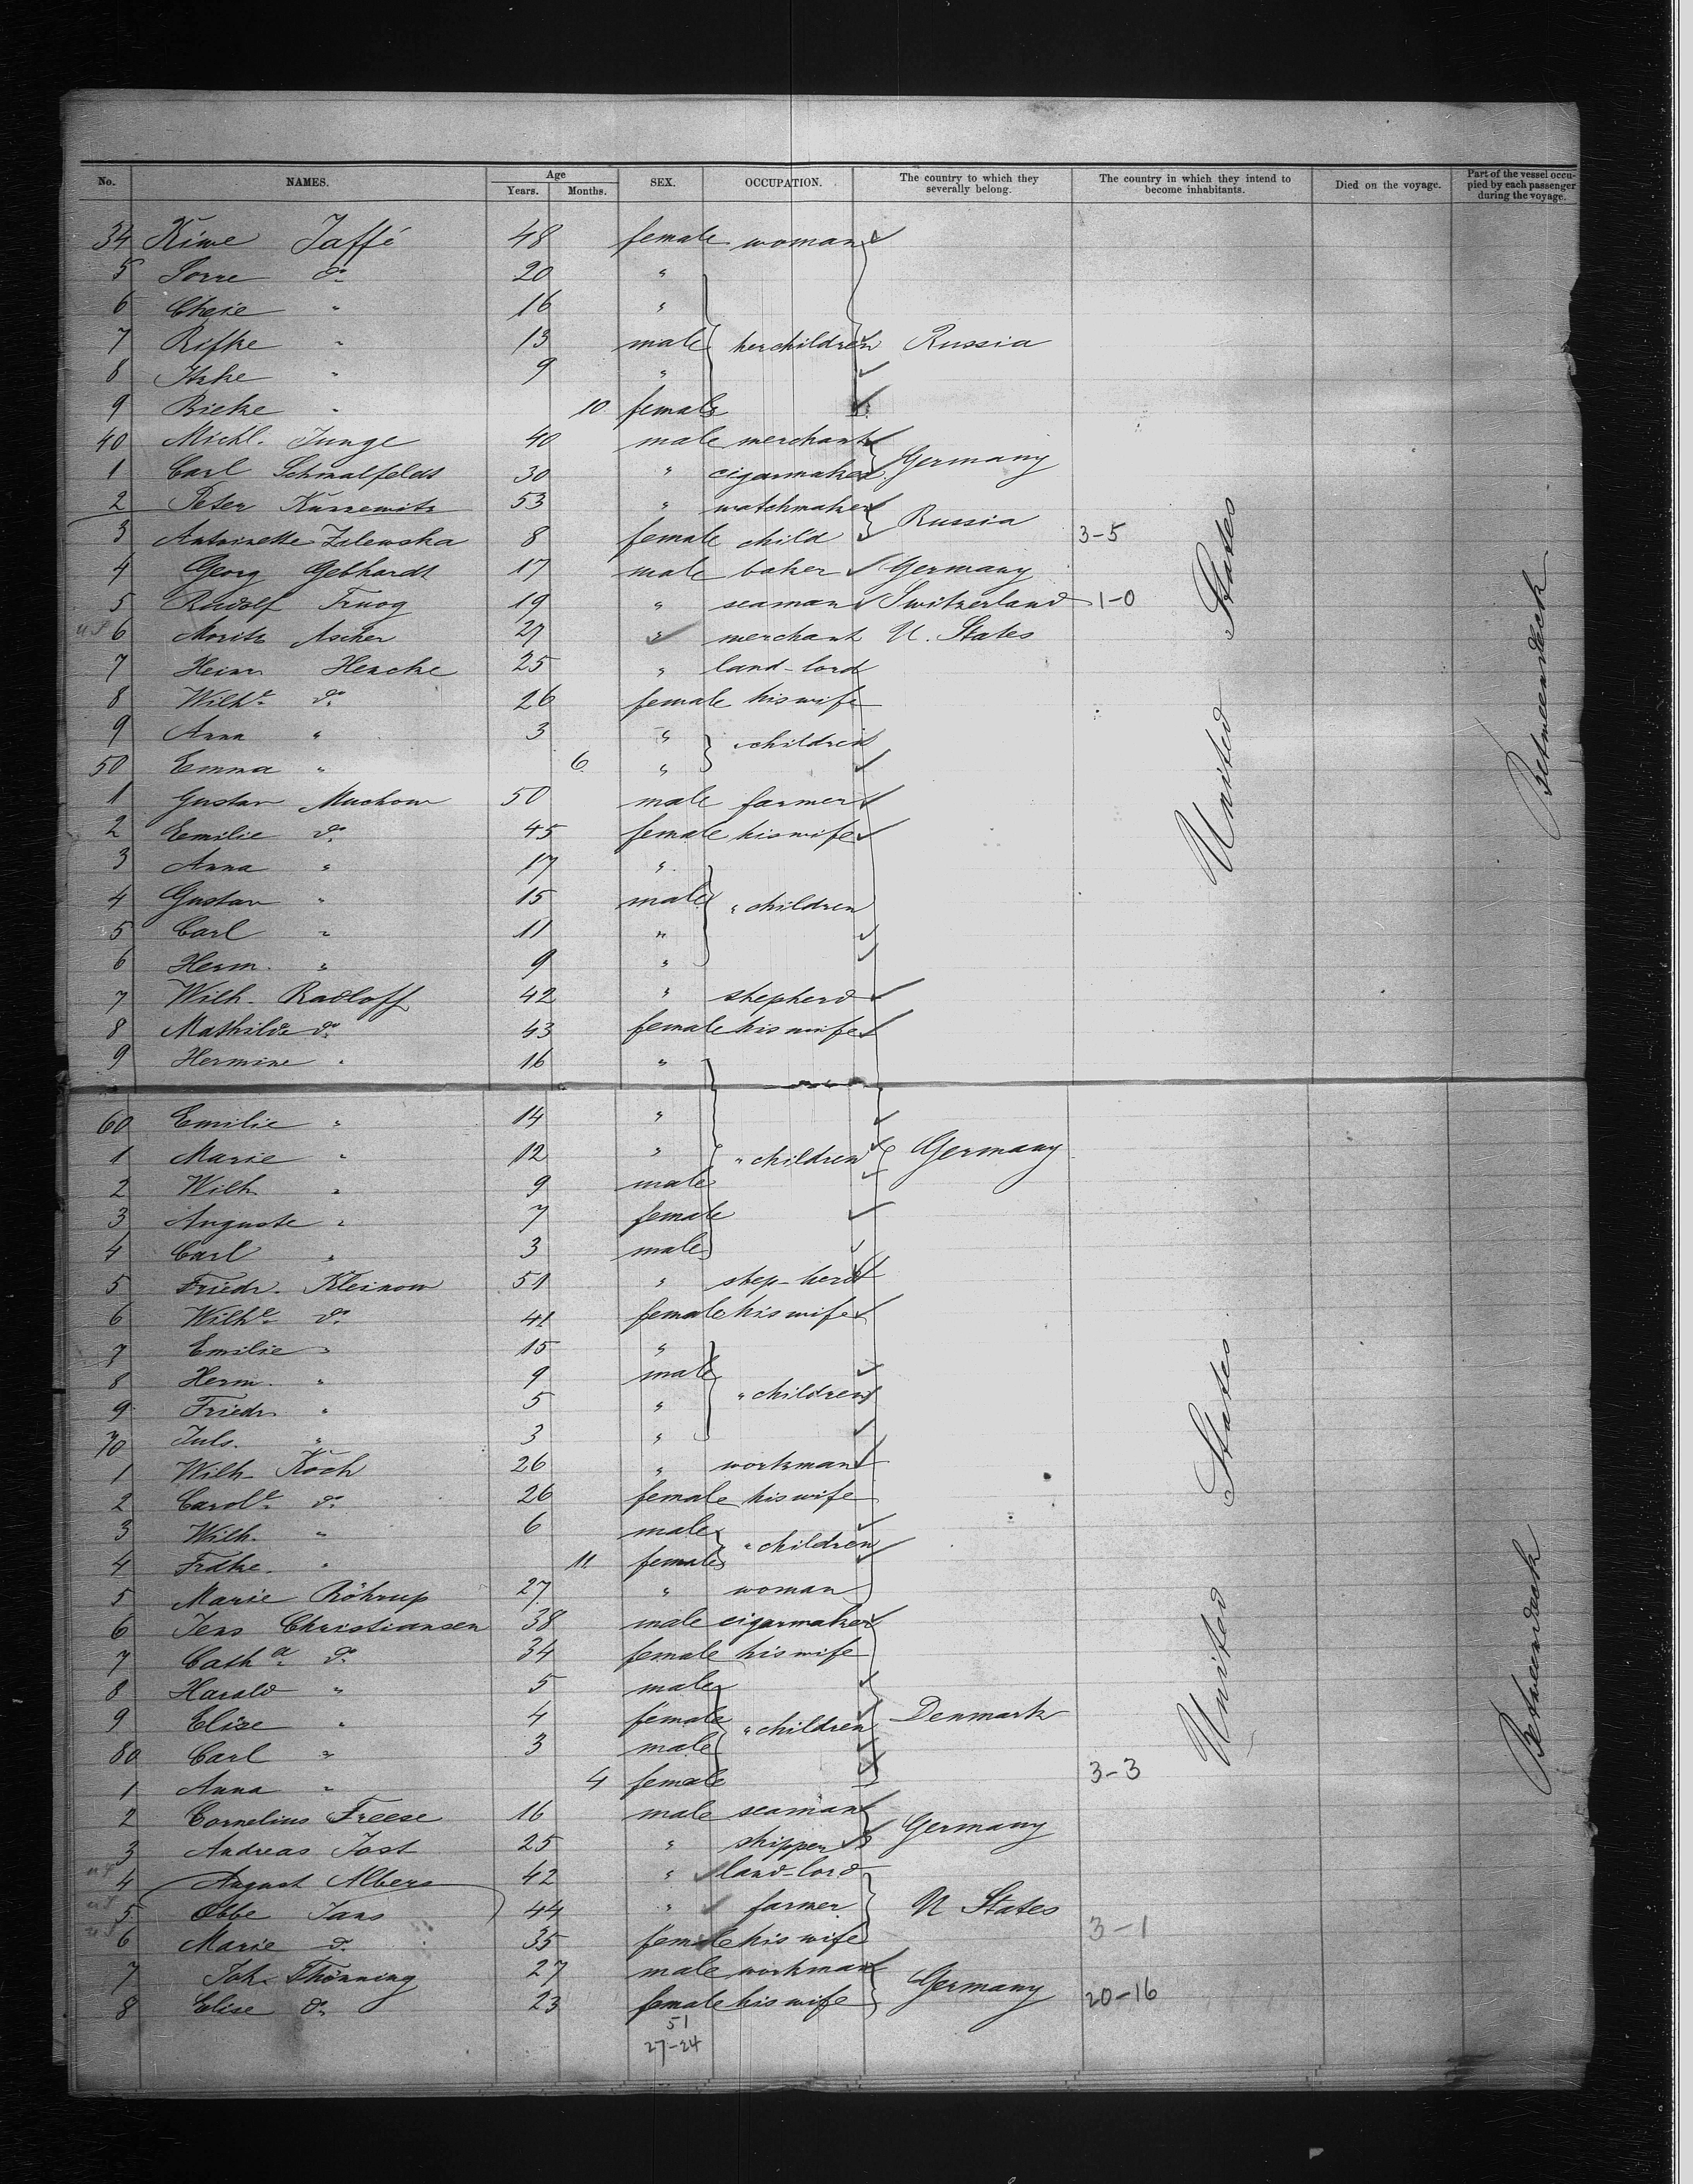 No. NAMES. Age Years. Months. SEX. OCCUPATION. The country to which they severally belong. The country in which they intend to become inhabitants. Died on the voyage. Part of the vessel occupied by each passenger during the voyage.
34 Kiwe Jaffé 48 female woman
5 Sorre do 20 "
6 Cheie " 16 "
7 Rifke " 13 male her children Russia
8 Itzke " 9 "
9 Rieke " 10 female
40 Michl. Junge 40 male merchant
1 Carl Schmalfeldt 30 " cigarmaker Germany
2 Peter Kurrewitz 53 " watchmaker
3 Antoinette Zelewska 8 female child Russia 3-5
4 Georg Gebhardt 17 male baker Germany
5 Rudolf Truog 19 " seaman Switzerland 1-0
US 6 Moritz Ascher 27 " merchant U. States
7 Heinr Hencke 25 " land-lord
8 Wilhe do 26 female his wife
9 Anna " 3 " " children
50 Emma " 6 "
1 Gustav Muchow 50 male farmer
2 Emilie do 45 female his wife
3 Anna " 17 "
4 Gustav " 15 male " children
5 Carl " 11 "
6 Herm. " 9 "
7 Wilh. Radloff 42 " shepherd
8 Mathilde do 43 female his wife
9 Hermine " 16 "
60 Emilie " 14 "
1 Marie " 12 " " children Germany
2 Wilh " 9 male
3 Auguste " 7 female
4 Carl " 3 male
5 Friedr. Kleinow 51 " shep-herd
6 Wilhe do 41 female his wife
7 Emilie " 15 "
8 Herm. " 9 male
9 Friedr " 5 " " children
70 Juls. " 3 "
1 Wilh. Koch 26 " workman
2 Carole do 26 female his wife
3 Wilh. " 6 male
4 Frdke. " 11 female " children
5 Marie Röhrup 27 " woman
6 Jens Christiansen 38 male cigarmaker
7 Catha do 34 female his wife
8 Harald " 5 male
9 Elise " 4 female " children Denmark
80 Carl " 3 male
1 Anna " 4 female 3-3
2 Cornelius Freese 16 male seaman
3 Andreas Jost 25 " shipper Germany
US 4 August Albers 42 " land-lord
US 5 Obbe Jans 44 " farmer U States
US 6 Marie do 35 female his wife 3-1
7 Joh. Thönning 27 male workman
8 Elise do 23 female his wife Germany 20-16
51
27-24
United States
United States
Betweendeck
Betweendeck